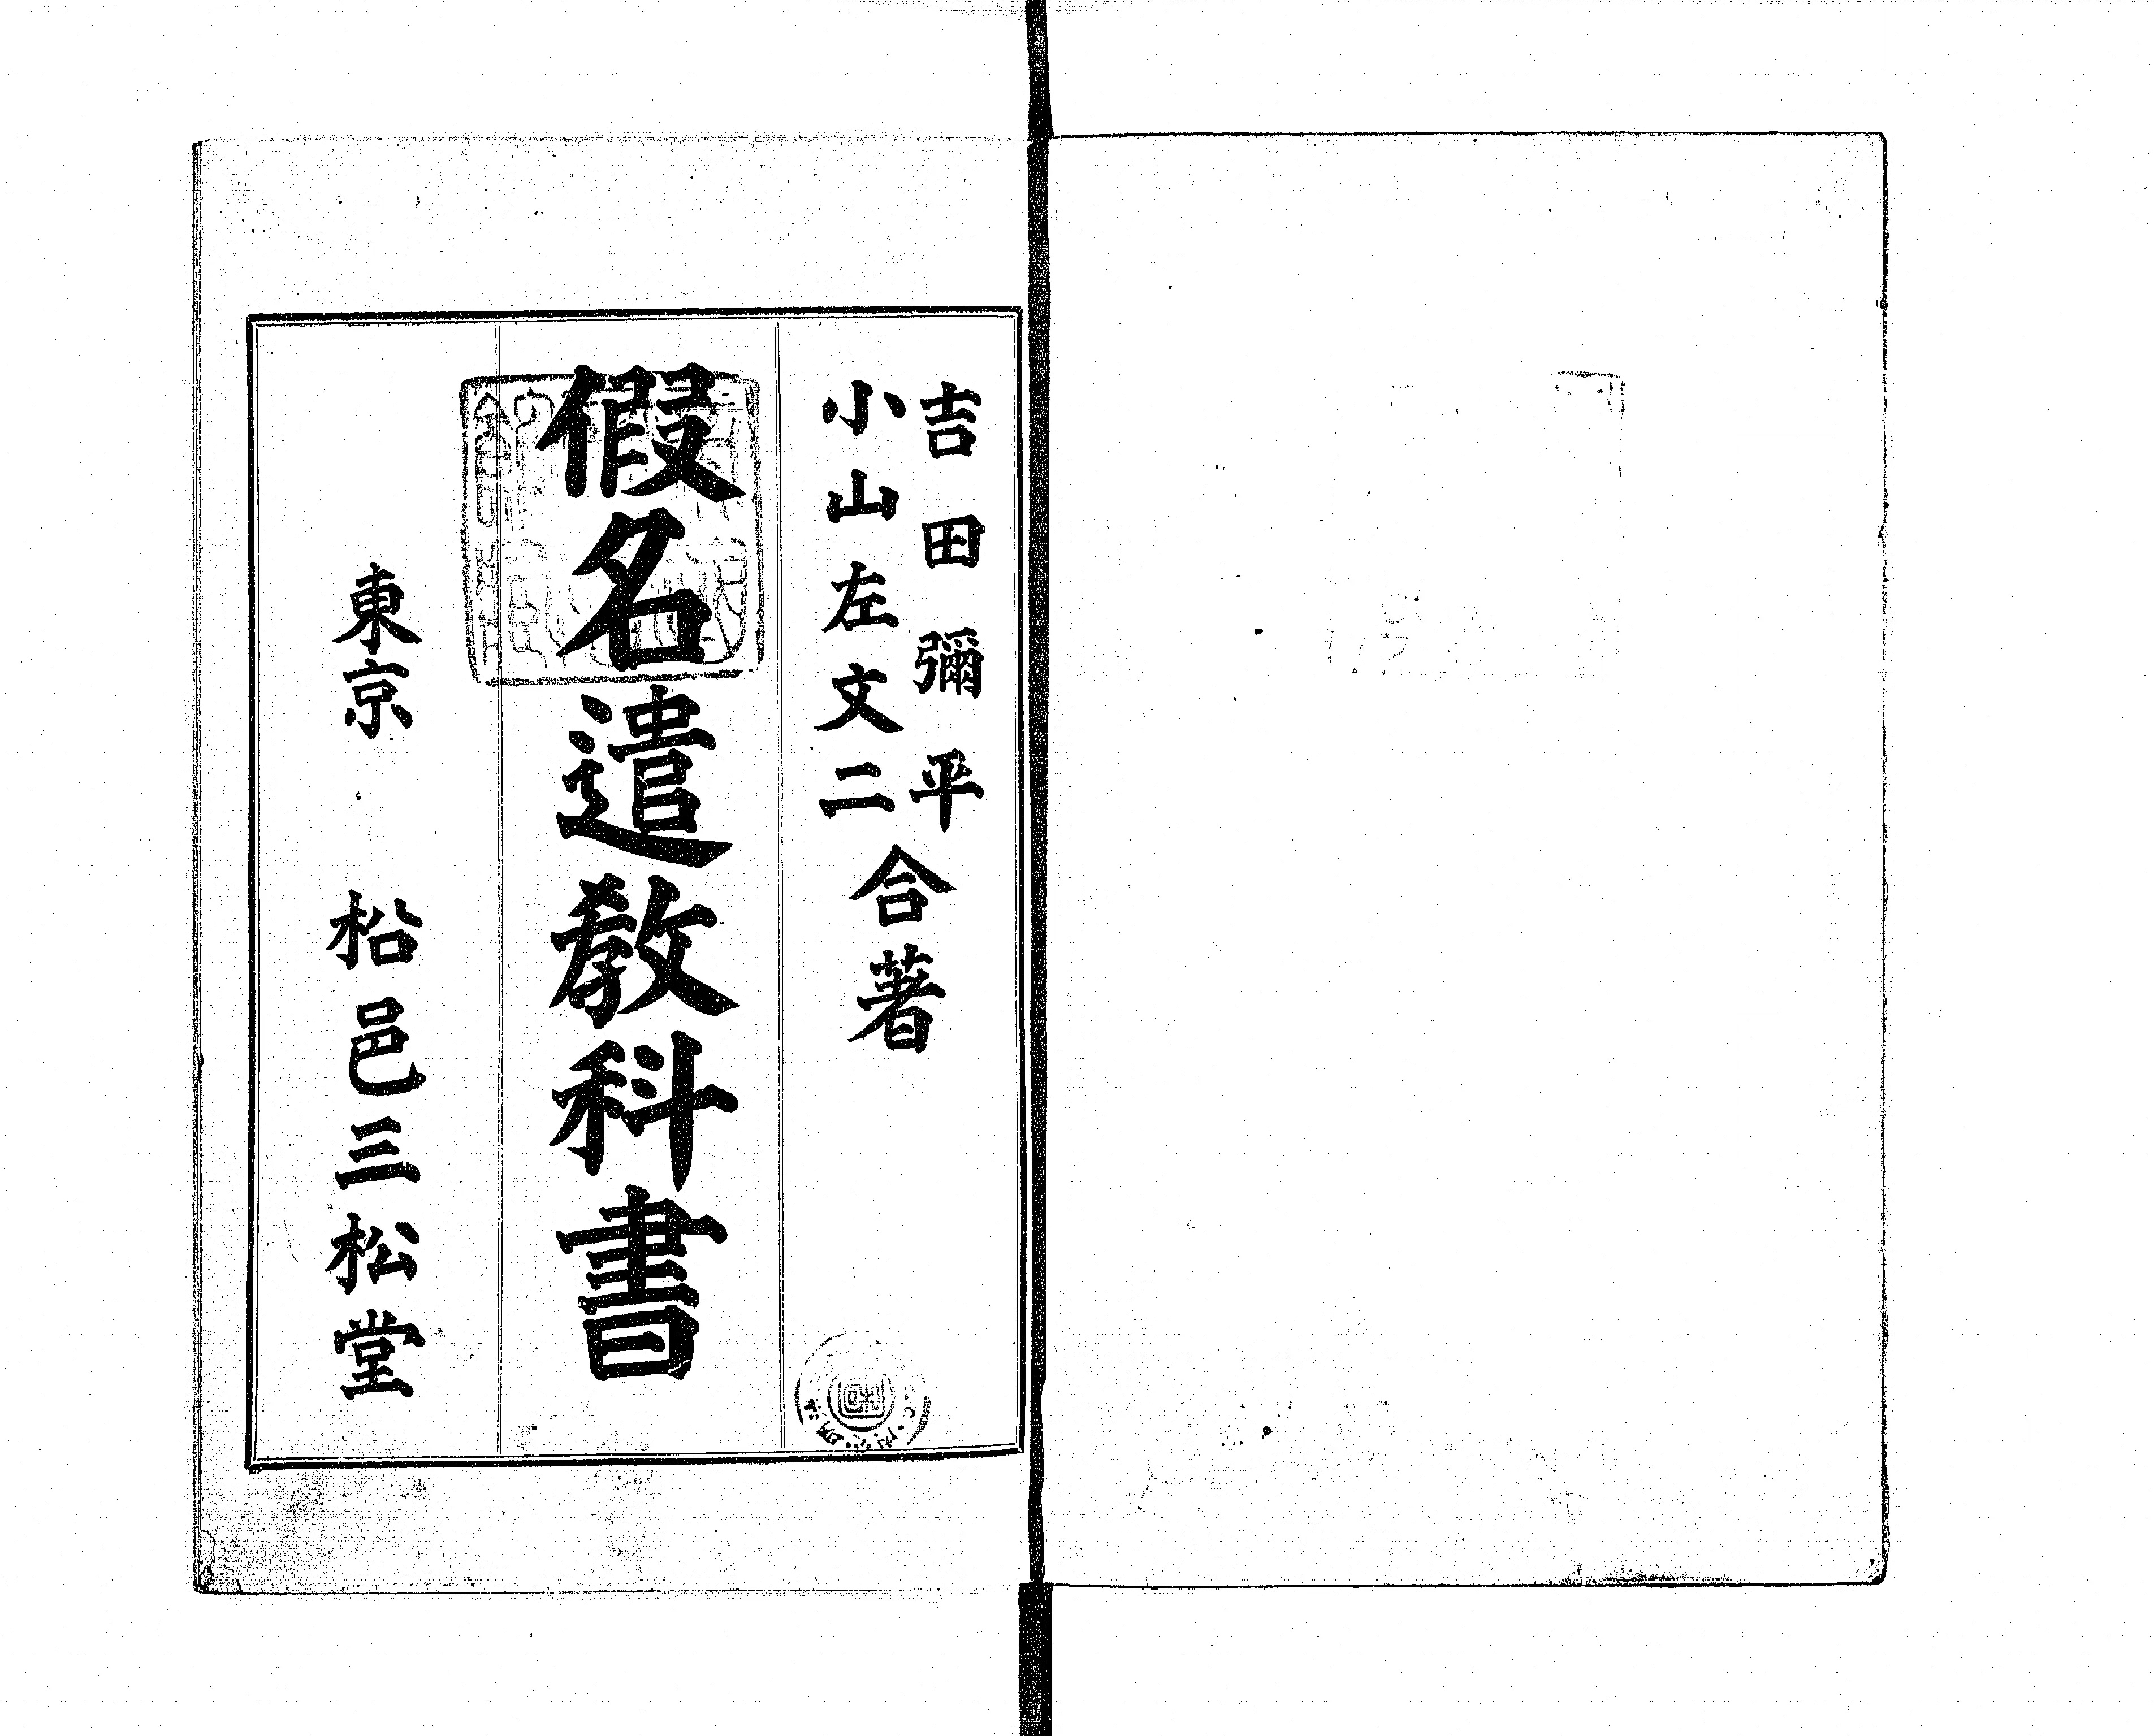 吉田彌平
小山左文二
合著
假名遣教科書
東京 松邑三松堂